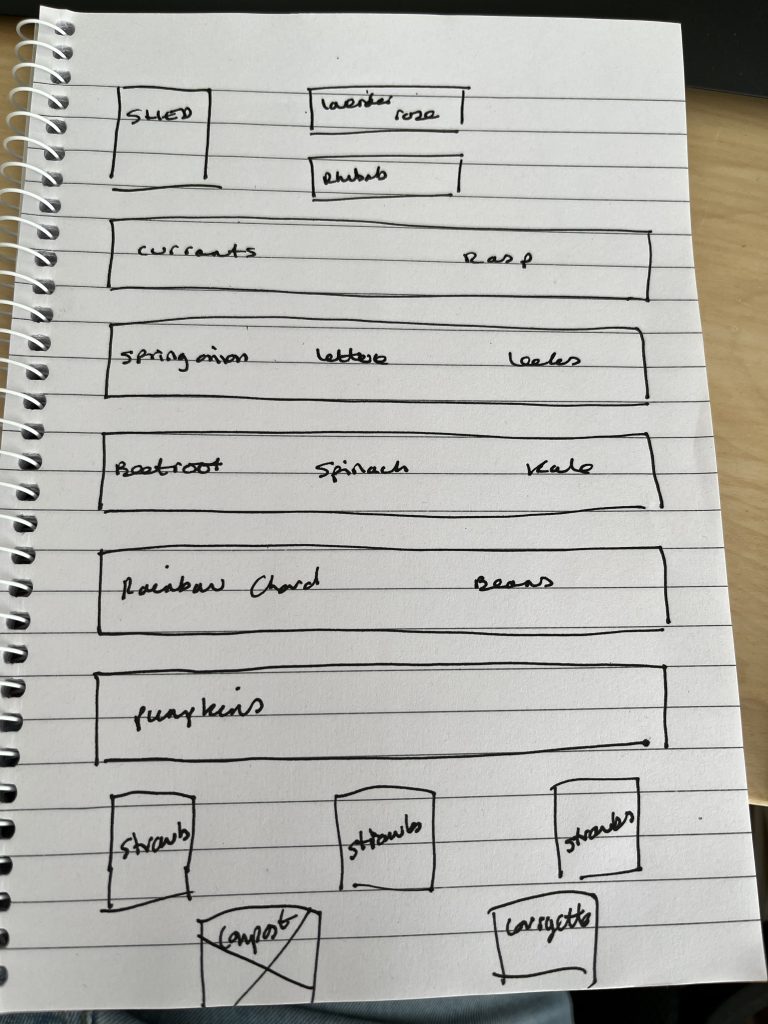 SHED
lavender
rose
Rhubab
currants Rasp
spring onion lettuce leeks
Beetroot Spinach Kale
Rainbow Chard Beans
pumpkins
strawb strawbs strawbs
compost courgette